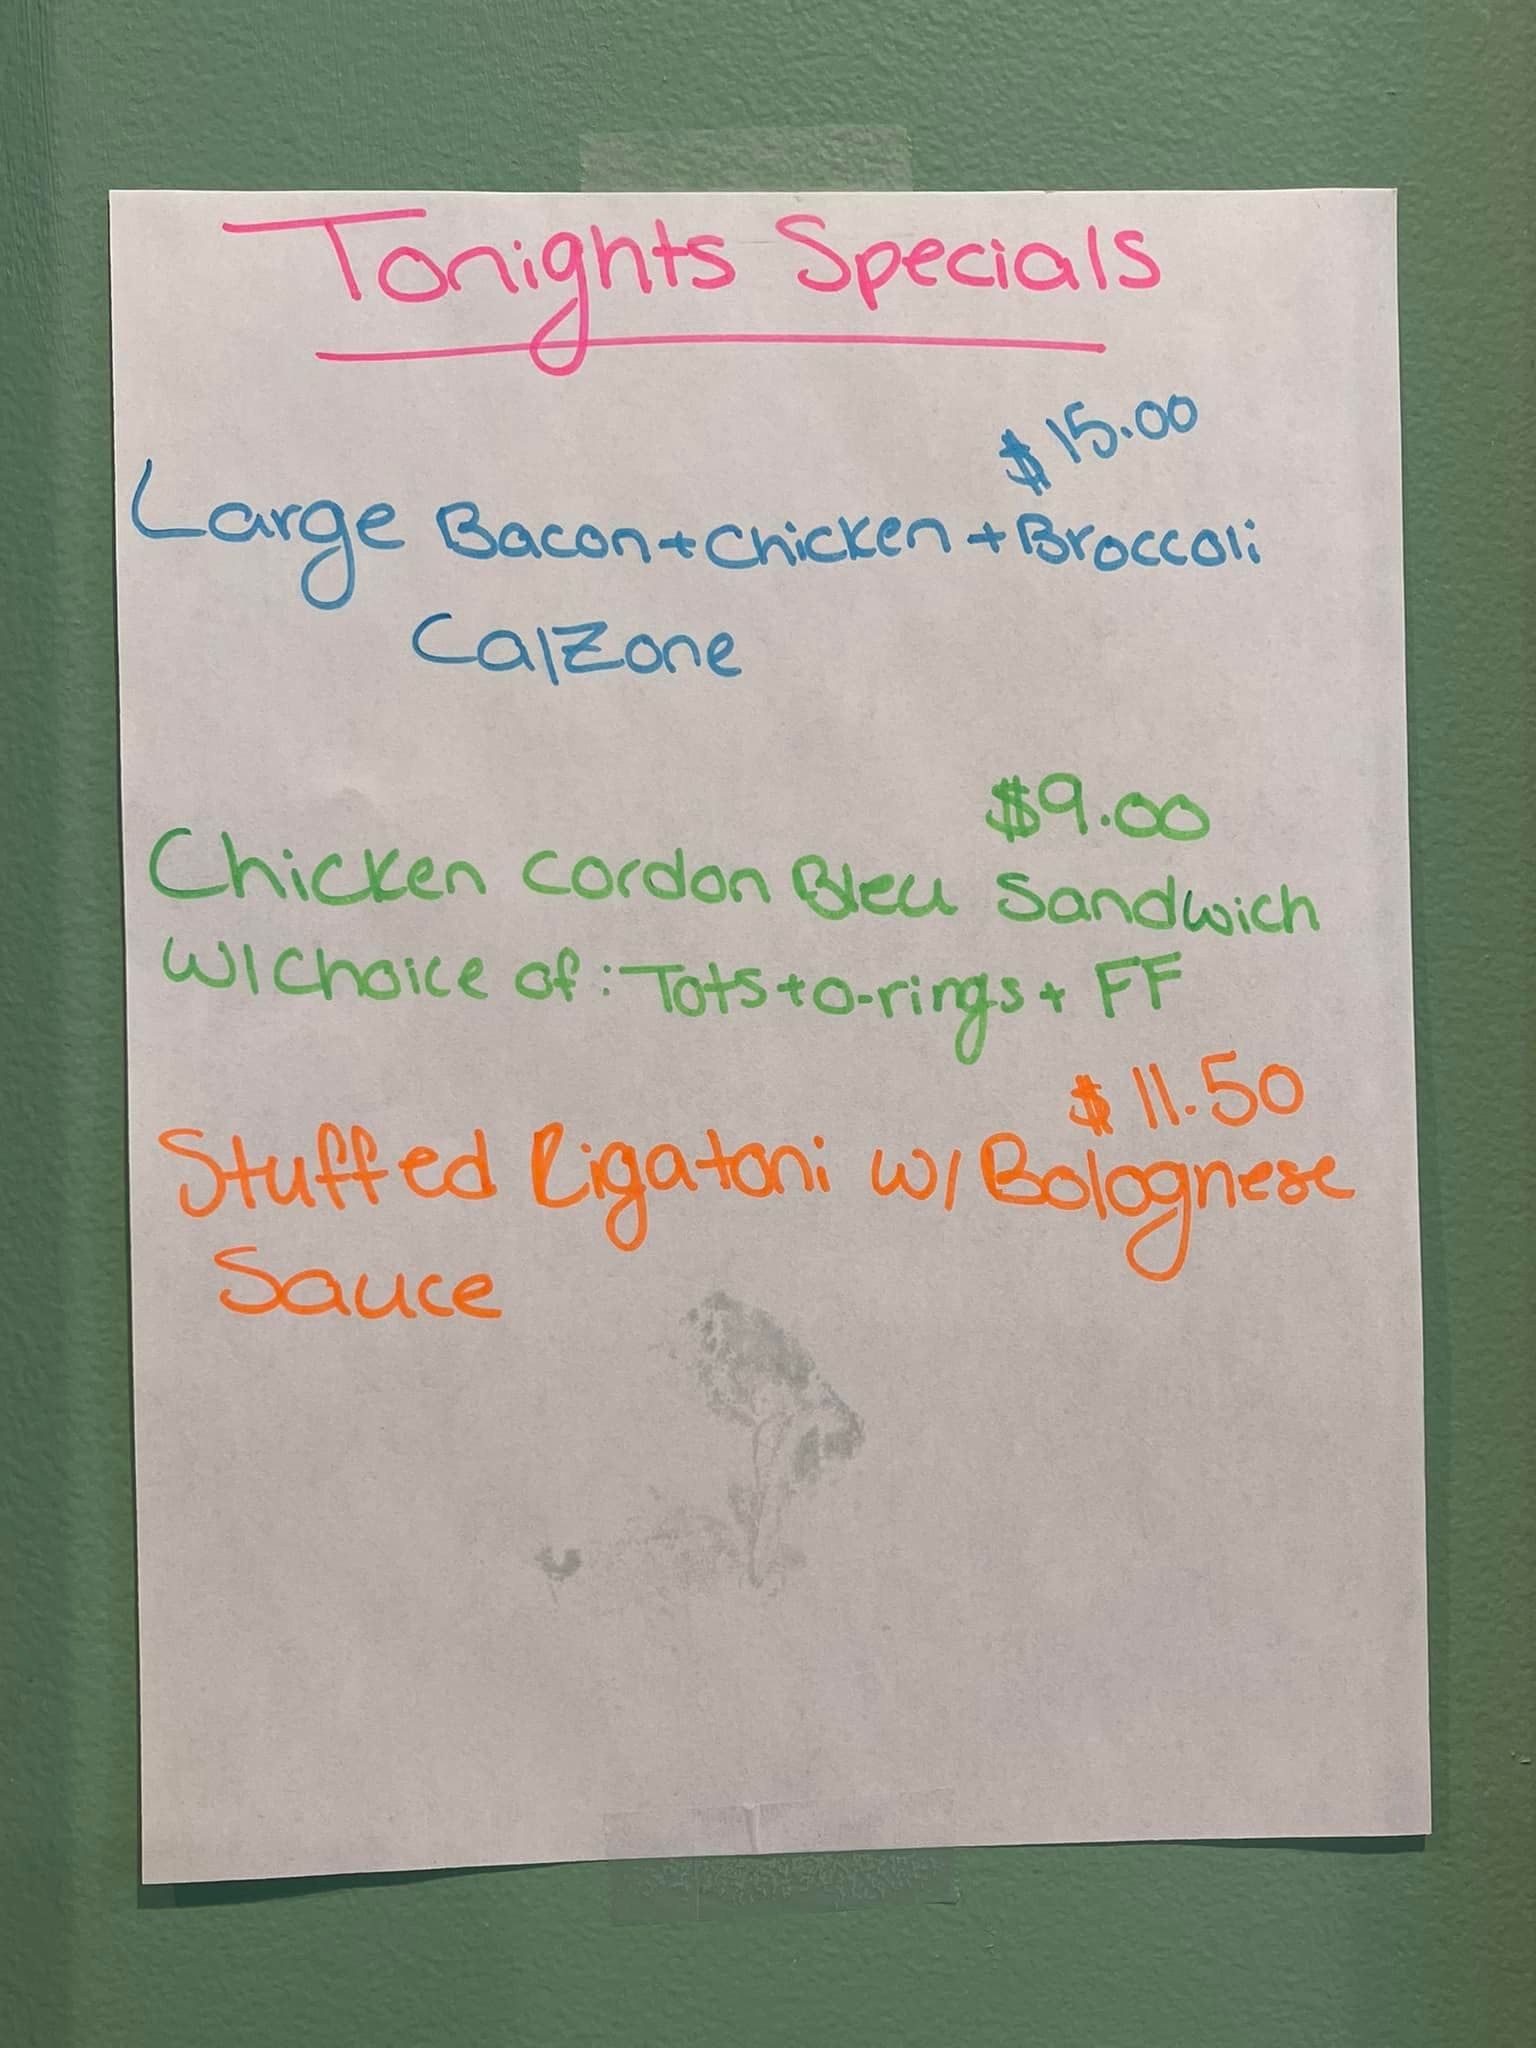 Tonights Specials
$15.00
Large Bacon + Chicken + Broccoli
Calzone
$9.00
Chicken Cordon Bleu Sandwich
W/Choice of: Tots + o-rings + FF
$11.50
Stuffed Rigatoni w/ Bolognese
Sauce